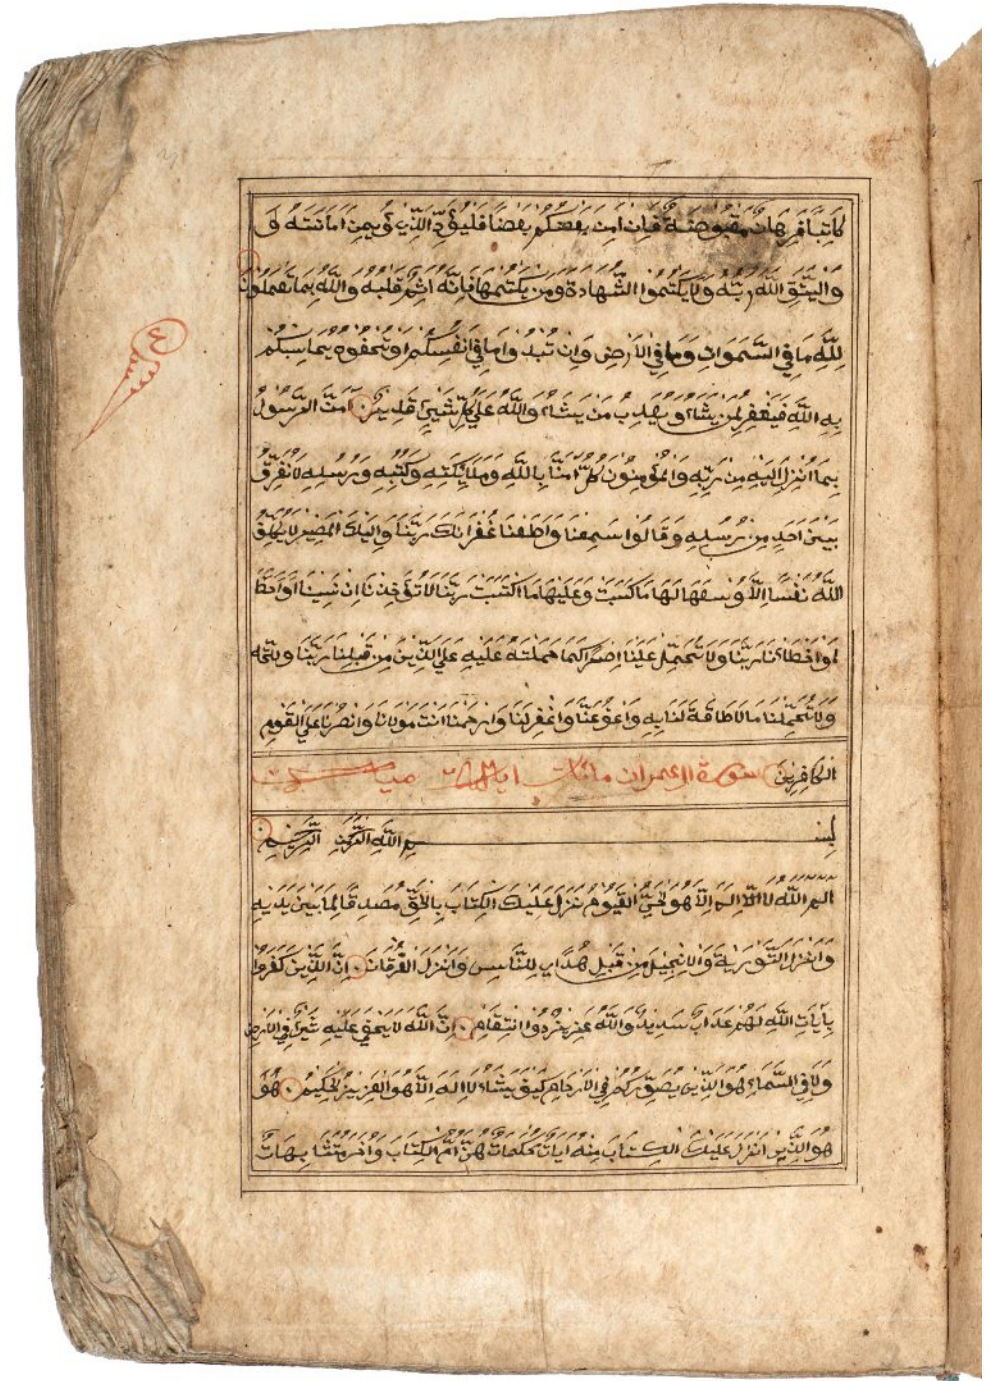 كَاتِبًا فَرِهَانٌ مَقْبُوضَةٌ فَاِنْ اَمِنَ بَعْضُكُمْ بَعْضًا فَلْيُؤَدِّ الَّذِي اؤْتُمِنَ اَمَانَتَهُ وَ
وَالْيَتَّقِ اللَّهَ رَبَّهُ وَلَا يَكْتُمُوا الشَّهَادَةَ وَمَنْ يَكْتُمْهَا فَاِنَّهُ اٰثِمٌ قَلْبُهُ وَاللَّهُ بِمَا تَعْمَلُونَ
لِلَّهِ مَا فِي السَّمَوَاتِ وَمَا فِي الْاَرْضِ وَاِنْ تُبْدُوا مَا فِي اَنْفُسِكُمْ اَوْ تُخْفُوهُ يُحَاسِبْكُمْ
بِهِ اللَّهُ فَيَغْفِرُ لِمَنْ يَشَاءُ وَيُعَذِّبُ مَنْ يَشَاءُ وَاللَّهُ عَلَى كُلِّ شَيْءٍ قَدِيرٌ اٰمَنَ الرَّسُولُ
بِمَا اُنْزِلَ اِلَيْهِ مِنْ رَبِّهِ وَالْمُؤْمِنُونَ كُلٌّ اٰمَنَ بِاللَّهِ وَمَلَائِكَتِهِ وَكُتُبِهِ وَرُسُلِهِ لَا نُفَرِّقُ
بَيْنَ اَحَدٍ مِنْ رُسُلِهِ وَقَالُوا سَمِعْنَا وَاَطَعْنَا غُفْرَانَكَ رَبَّنَا وَاِلَيْكَ الْمَصِيرُ لَا يُكَلِّفُ
اللَّهُ نَفْسًا اِلَّا وُسْعَهَا لَهَا مَا كَسَبَتْ وَعَلَيْهَا مَا اكْتَسَبَتْ رَبَّنَا لَا تُؤَاخِذْنَا اِنْ نَسِينَا اَوْ اَخْطَا
اَوْ اَخْطَأْنَا رَبَّنَا وَلَا تَحْمِلْ عَلَيْنَا اِصْرًا كَمَا حَمَلْتَهُ عَلَيْهِ عَلَى الَّذِينَ مِنْ قَبْلِنَا رَبَّنَا وَلَا تُحَـ
وَلَا تُحَمِّلْنَا مَا لَا طَاقَةَ لَنَا بِهِ وَاعْفُ عَنَّا وَاغْفِرْ لَنَا وَارْحَمْنَا اَنْتَ مَوْلَانَا وَانْصُرْنَا عَلَى الْقَوْمِ
الْكَافِرِينَ سورة ال عمران مائتان ايات
بِسْمِ اللَّهِ الرَّحْمٰنِ الرَّحِيمِ
الم اللَّهُ لَا اِلَهَ اِلَّا هُوَ الْحَيُّ الْقَيُّومُ نَزَّلَ عَلَيْكَ الْكِتَابَ بِالْحَقِّ مُصَدِّقًا لِمَا بَيْنَ يَدَيْهِ
وَاَنْزَلَ التَّوْرَيةَ وَالْاِنْجِيلَ مِنْ قَبْلُ هُدًى لِلنَّاسِ وَاَنْزَلَ الْفُرْقَانَ اِنَّ الَّذِينَ كَفَرُوا
بِاٰيَاتِ اللَّهِ لَهُمْ عَذَابٌ شَدِيدٌ وَاللَّهُ عَزِيزٌ ذُوا انْتِقَامٍ اِنَّ اللَّهَ لَا يَخْفَى عَلَيْهِ شَيْءٌ فِي الْاَرْضِ
وَلَا فِي السَّمَاءِ هُوَ الَّذِي يُصَوِّرُكُمْ فِي الْاَرْحَامِ كَيْفَ يَشَاءُ لَا اِلَهَ اِلَّا هُوَ الْعَزِيزُ الْحَكِيمُ هُوَ
هُوَ الَّذِي اَنْزَلَ عَلَيْكَ الْكِتَابَ مِنْهُ اٰيَاتٌ مُحْكَمَاتٌ هُنَّ اُمُّ الْكِتَابِ وَاُخَرُ مُتَشَابِهَاتٌ